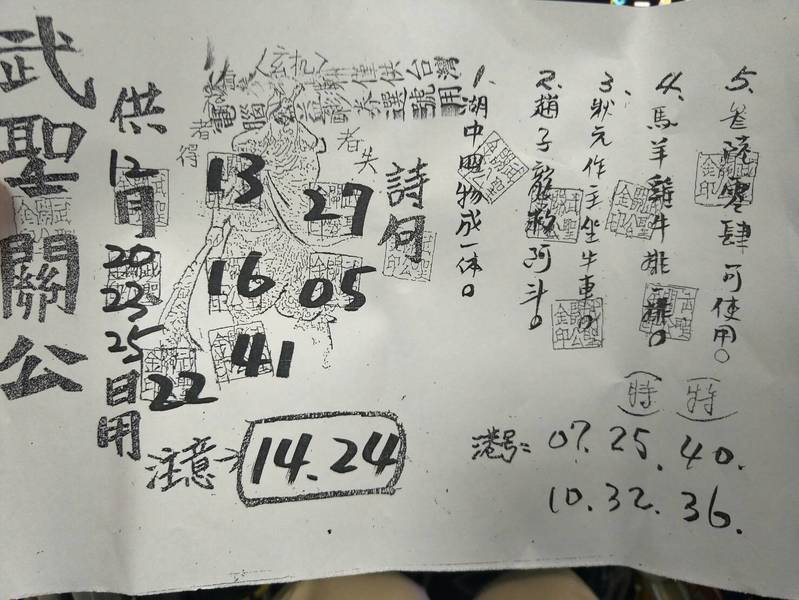 武聖關公
供12月20
23
25日用
13
27
16
05
41
22
得者
失者
注意→14.24
詩句
1.湖中四物成一体。
2.趙子龍救阿斗。
3.狀元作主坐牛車。
4.馬羊雞牛排一樣。
5.叁陸零肆可使用。
(特) (特)
港号: 07. 25. 40.
10. 32. 36.